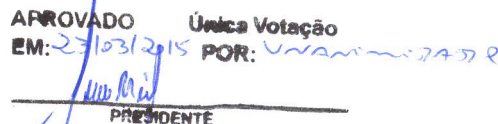 APROVADO Única Votação
EM: 23/03/2015 POR: UNANIMIDADE
PRESIDENTE